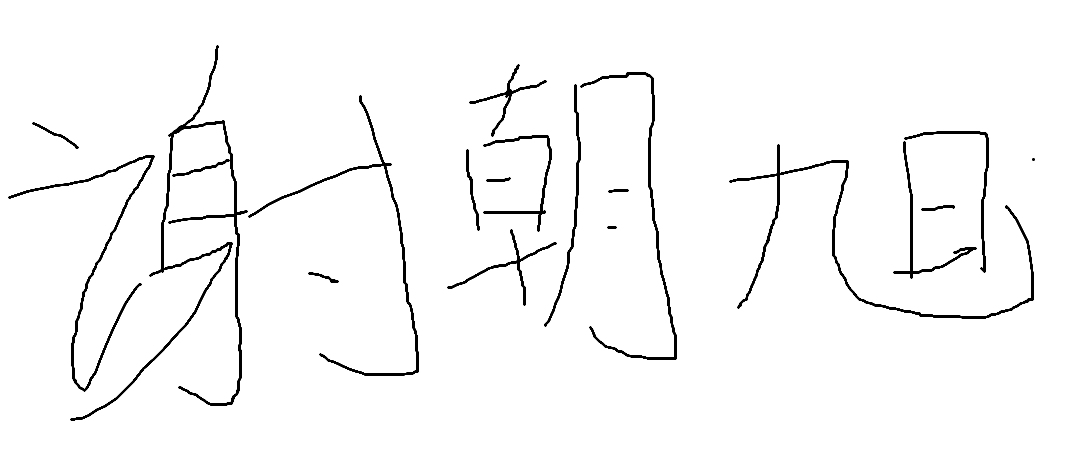 谢朝旭